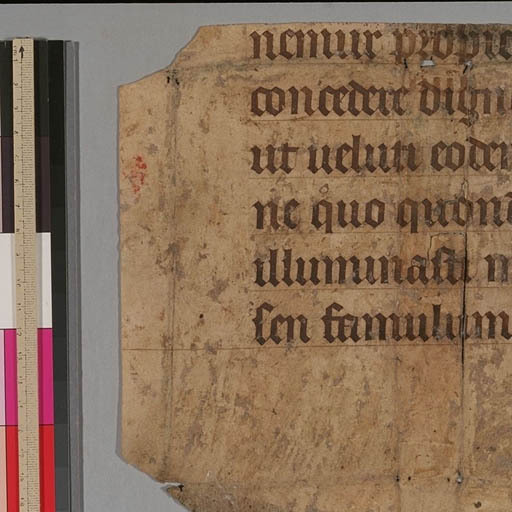 nemur propic
concedere dign
ut ueluti eoden
ne quo quond
illuminasti m
sen famulum